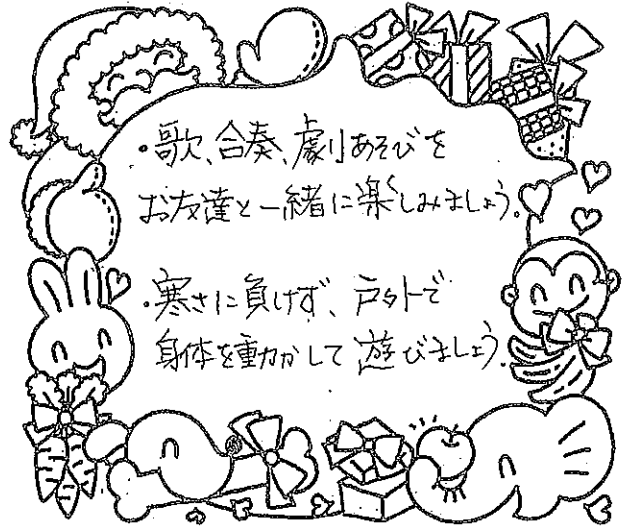 ・歌、合奏、劇あそびを
お友達と一緒に楽しみましょう。
・寒さに負けず、戸外で
身体を動かして遊びましょう。